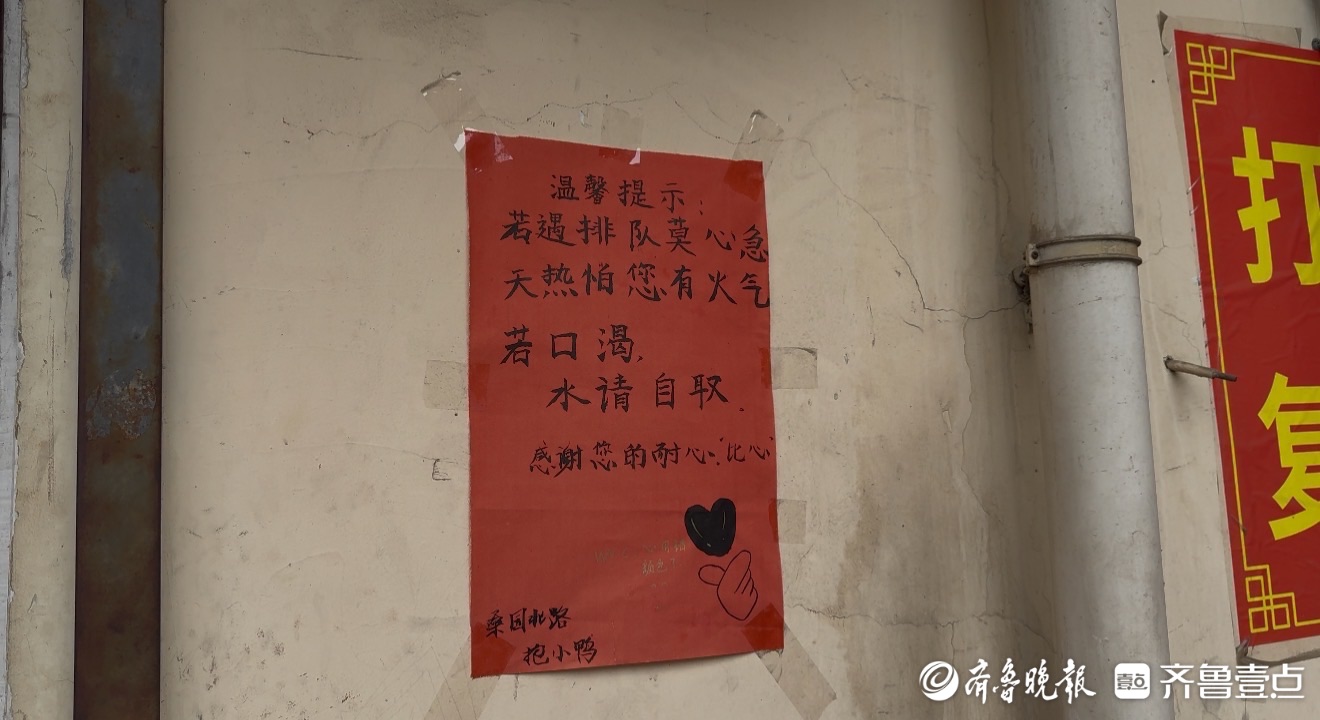 温馨提示:
若遇排队莫心急
天热怕您有火气
若口渴,
水请自取.
感谢您的耐心."比心"
桑园北路
抱小鸭
打
复
齐鲁晚报
壹点
齐鲁壹点